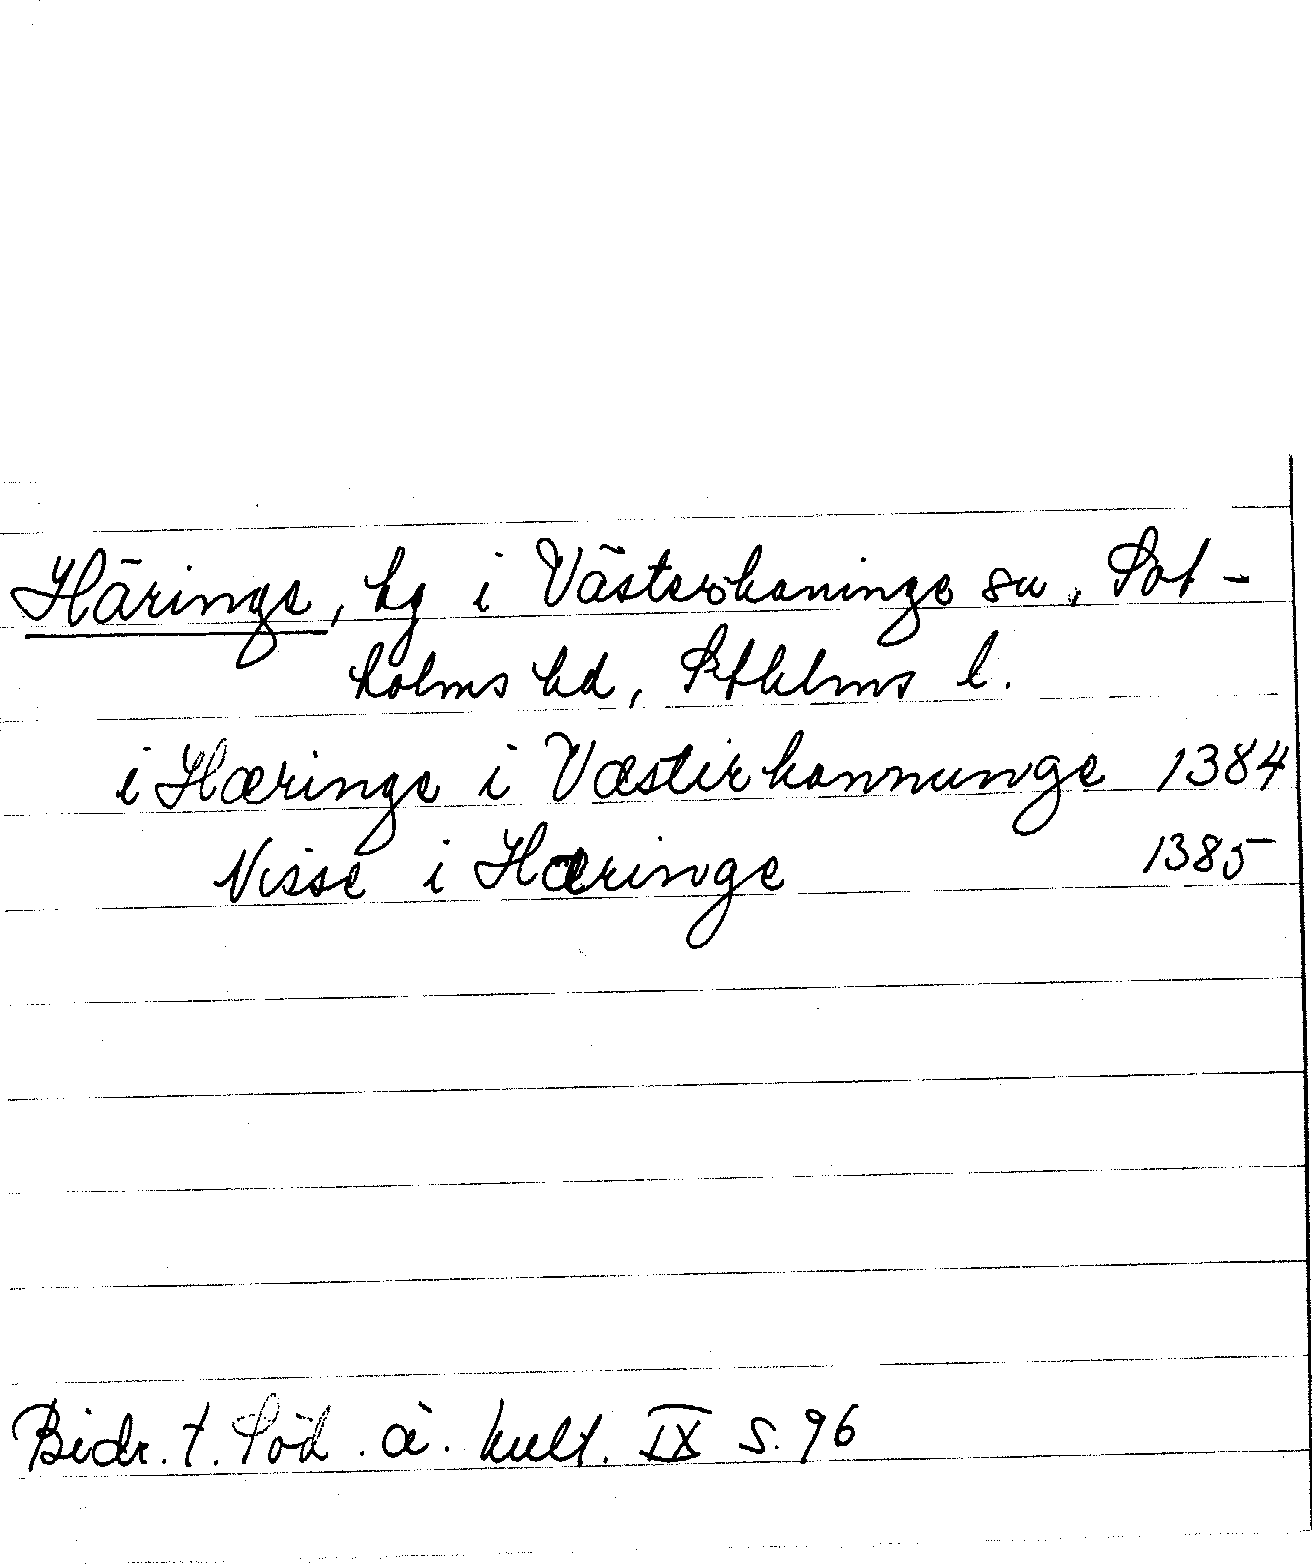 Häringe, hg i Västerhaninge sn, Sot-
holms hd, Sthlms l.
i Hæringe i Væstirhannunge 1384
Nisse i Hæringe 1385
Bidr. t. Söd. ä. kult. IX s. 96